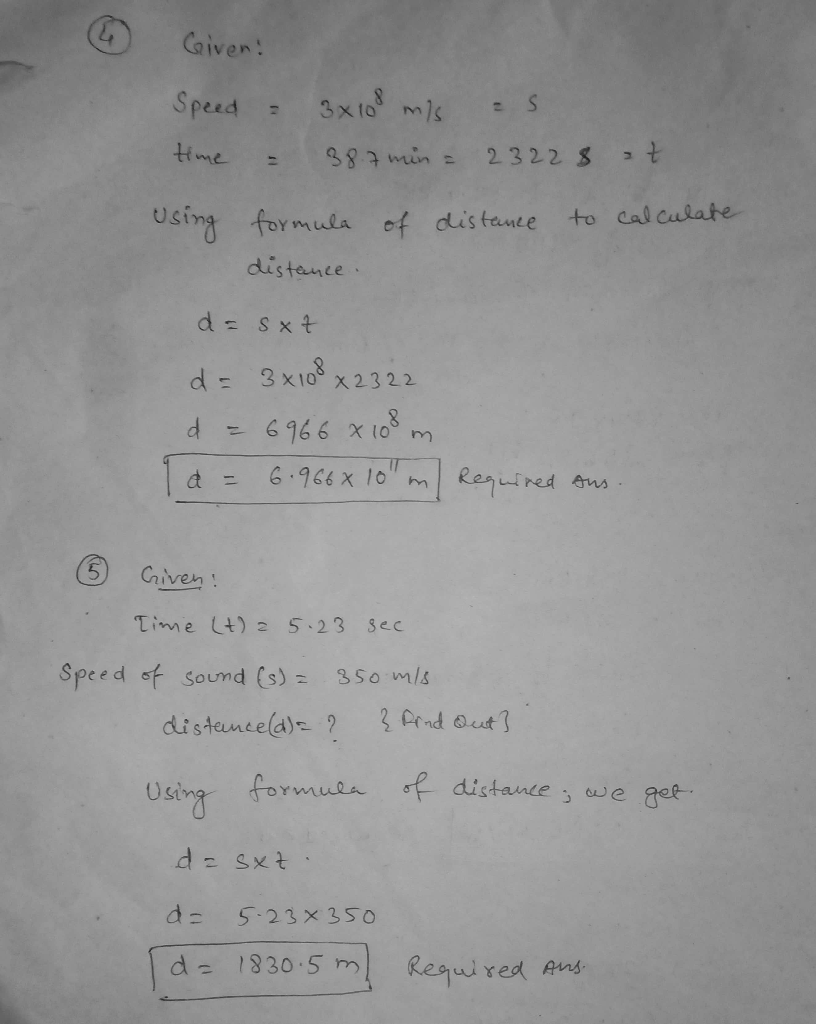 ④ Given:
Speed = 3×10⁸ m/s = s
time = 38.7 min = 2322 s = t
Using formula of distance to calculate
distance.
d = s×t
d = 3×10⁸ × 2322
d = 6966 × 10⁸ m
d = 6.966 × 10¹¹ m Required Ans.
⑤ Given:
Time (t) = 5.23 sec
Speed of sound (s) = 350 m/s
distance(d) = ? {find out}
Using formula of distance; we get.
d = s×t.
d = 5.23×350
d = 1830.5 m Required Ans.